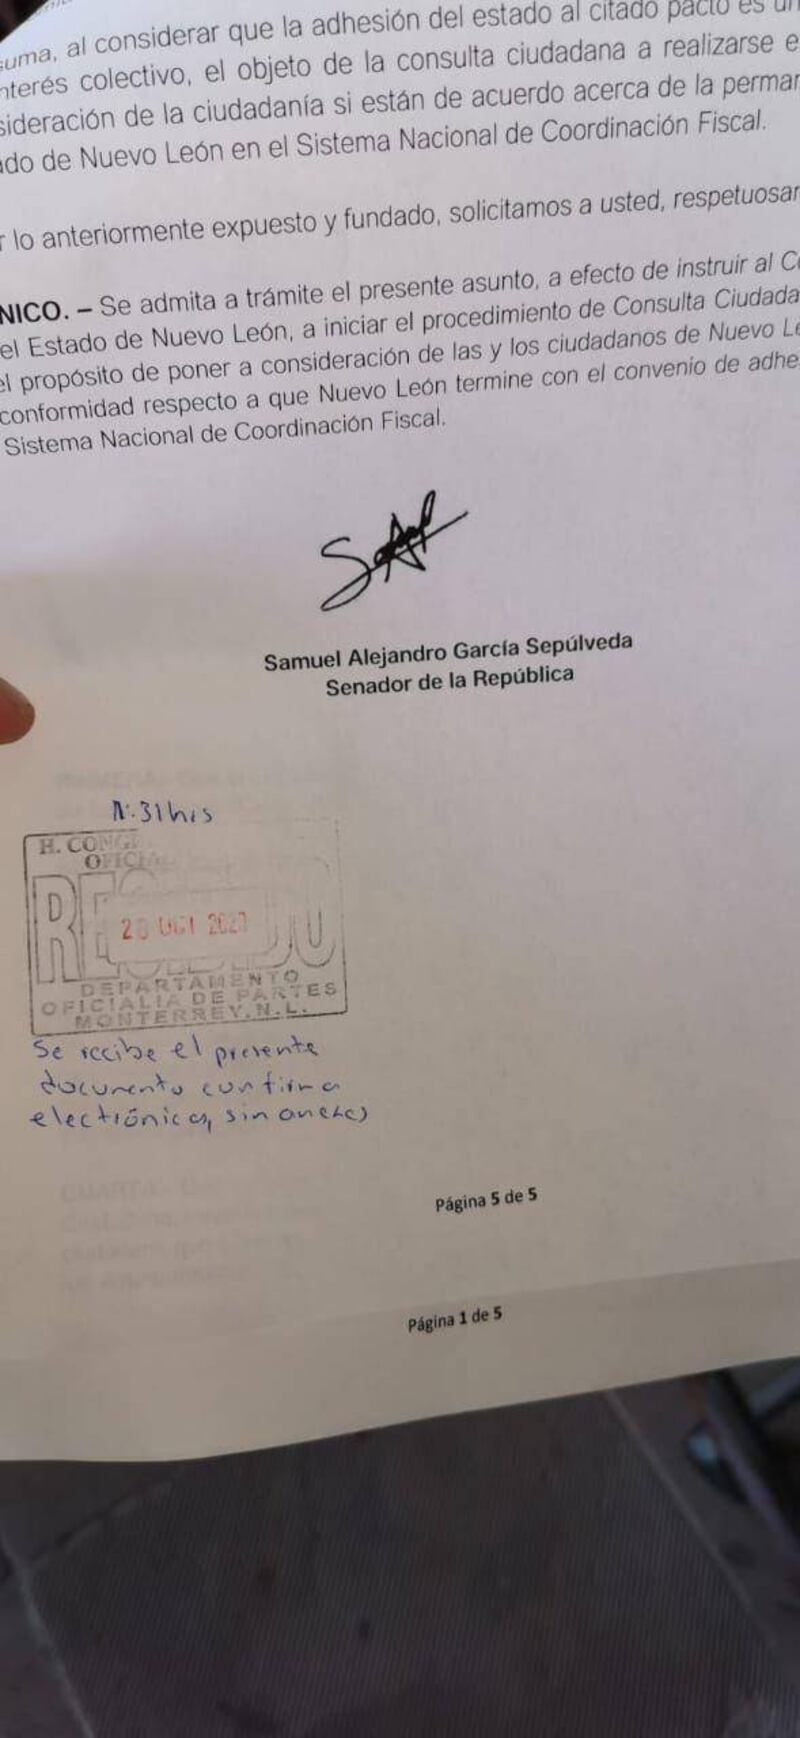 suma, al considerar que la adhesión del estado al citado pacto es un
nterés colectivo, el objeto de la consulta ciudadana a realizarse e
sideración de la ciudadanía si están de acuerdo acerca de la perman
ado de Nuevo León en el Sistema Nacional de Coordinación Fiscal.
r lo anteriormente expuesto y fundado, solicitamos a usted, respetuosam
NICO. – Se admita a trámite el presente asunto, a efecto de instruir al Co
el Estado de Nuevo León, a iniciar el procedimiento de Consulta Ciudada
el propósito de poner a consideración de las y los ciudadanos de Nuevo Le
conformidad respecto a que Nuevo León termine con el convenio de adhe
Sistema Nacional de Coordinación Fiscal.
Samuel Alejandro García Sepúlveda
Senador de la República
31 hrs
H. CONG
OFICIA
RECIBIDO
OCT
DEPARTAMENTO
OFICIALIA DE PARTES
MONTERREY, N.L.
Se recibe el presente
documento con firma
electrónica, sin anexos
Página 5 de 5
Página 1 de 5